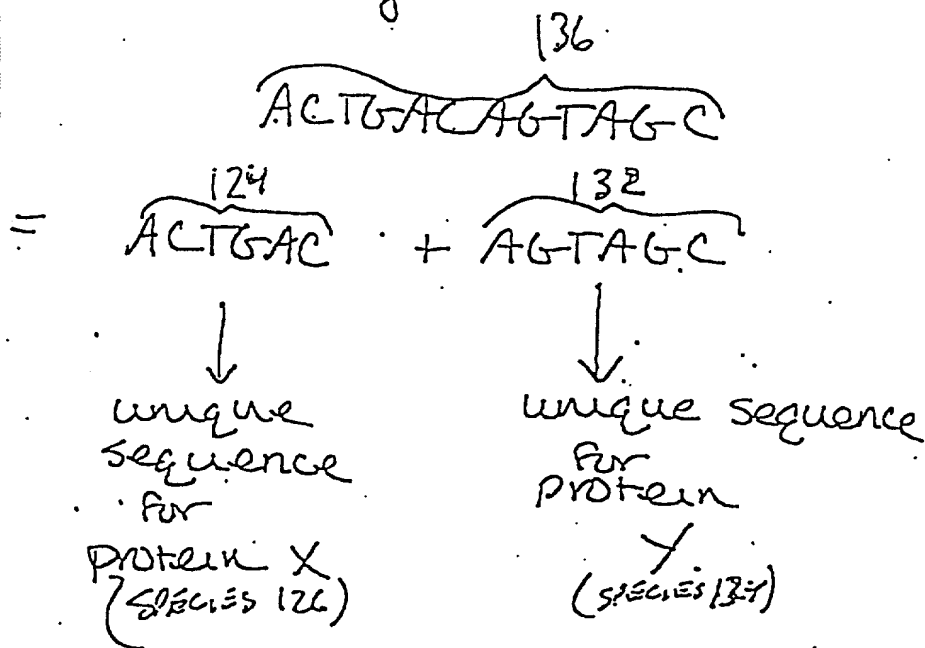 136
ACTGACAGTAGC
124 132
= ACTGAC + AGTAGC
unique
sequence
for
protein X
(SPECIES 126)
unique sequence
for
protein
Y
(SPECIES 134)